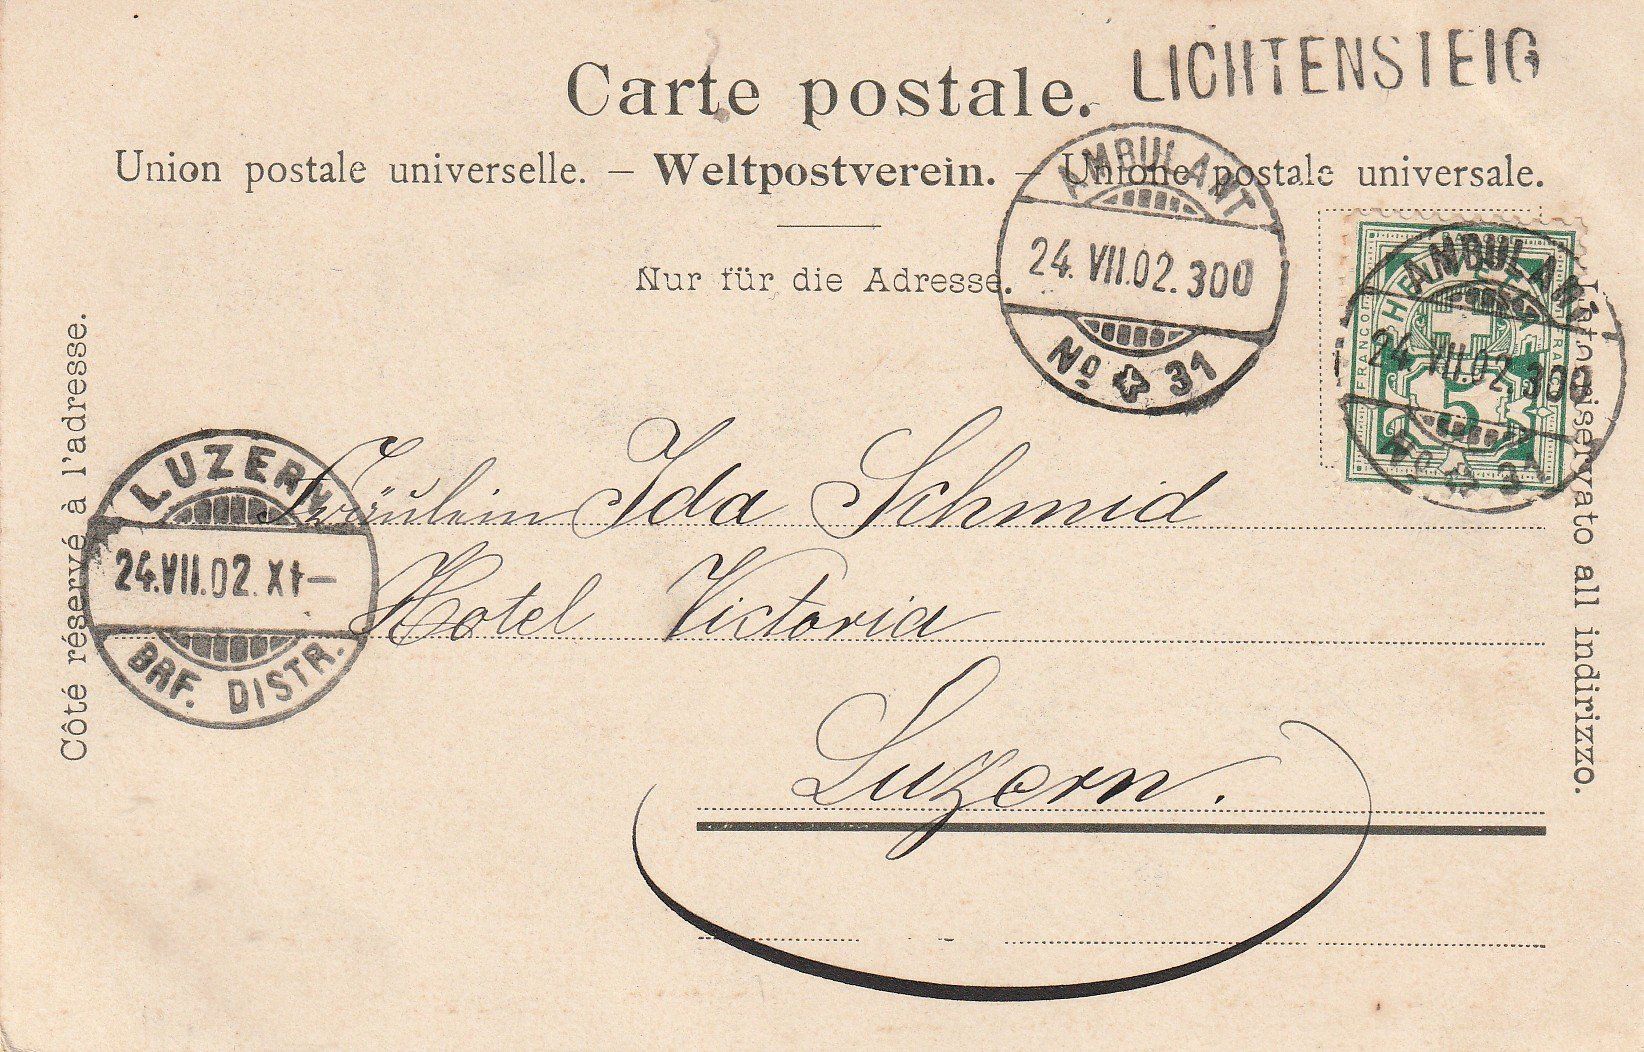 LICHTENSTEIG
Carte postale.
Union postale universelle. – Weltpostverein. – Unione postale universale.
Nur für die Adresse.
AMBULANT
24. VII.02. 300
No 31
FRANCO
HELVETIA
5
AMBULANT
24. VII.02. 300
No 31
Côté réservé à l'adresse.
Lato riservato all indirizzo.
LUZERN
24.VII.02. XI–
BRF. DISTR.
Fräulein Ida Schmid
Hotel Victoria
Luzern.